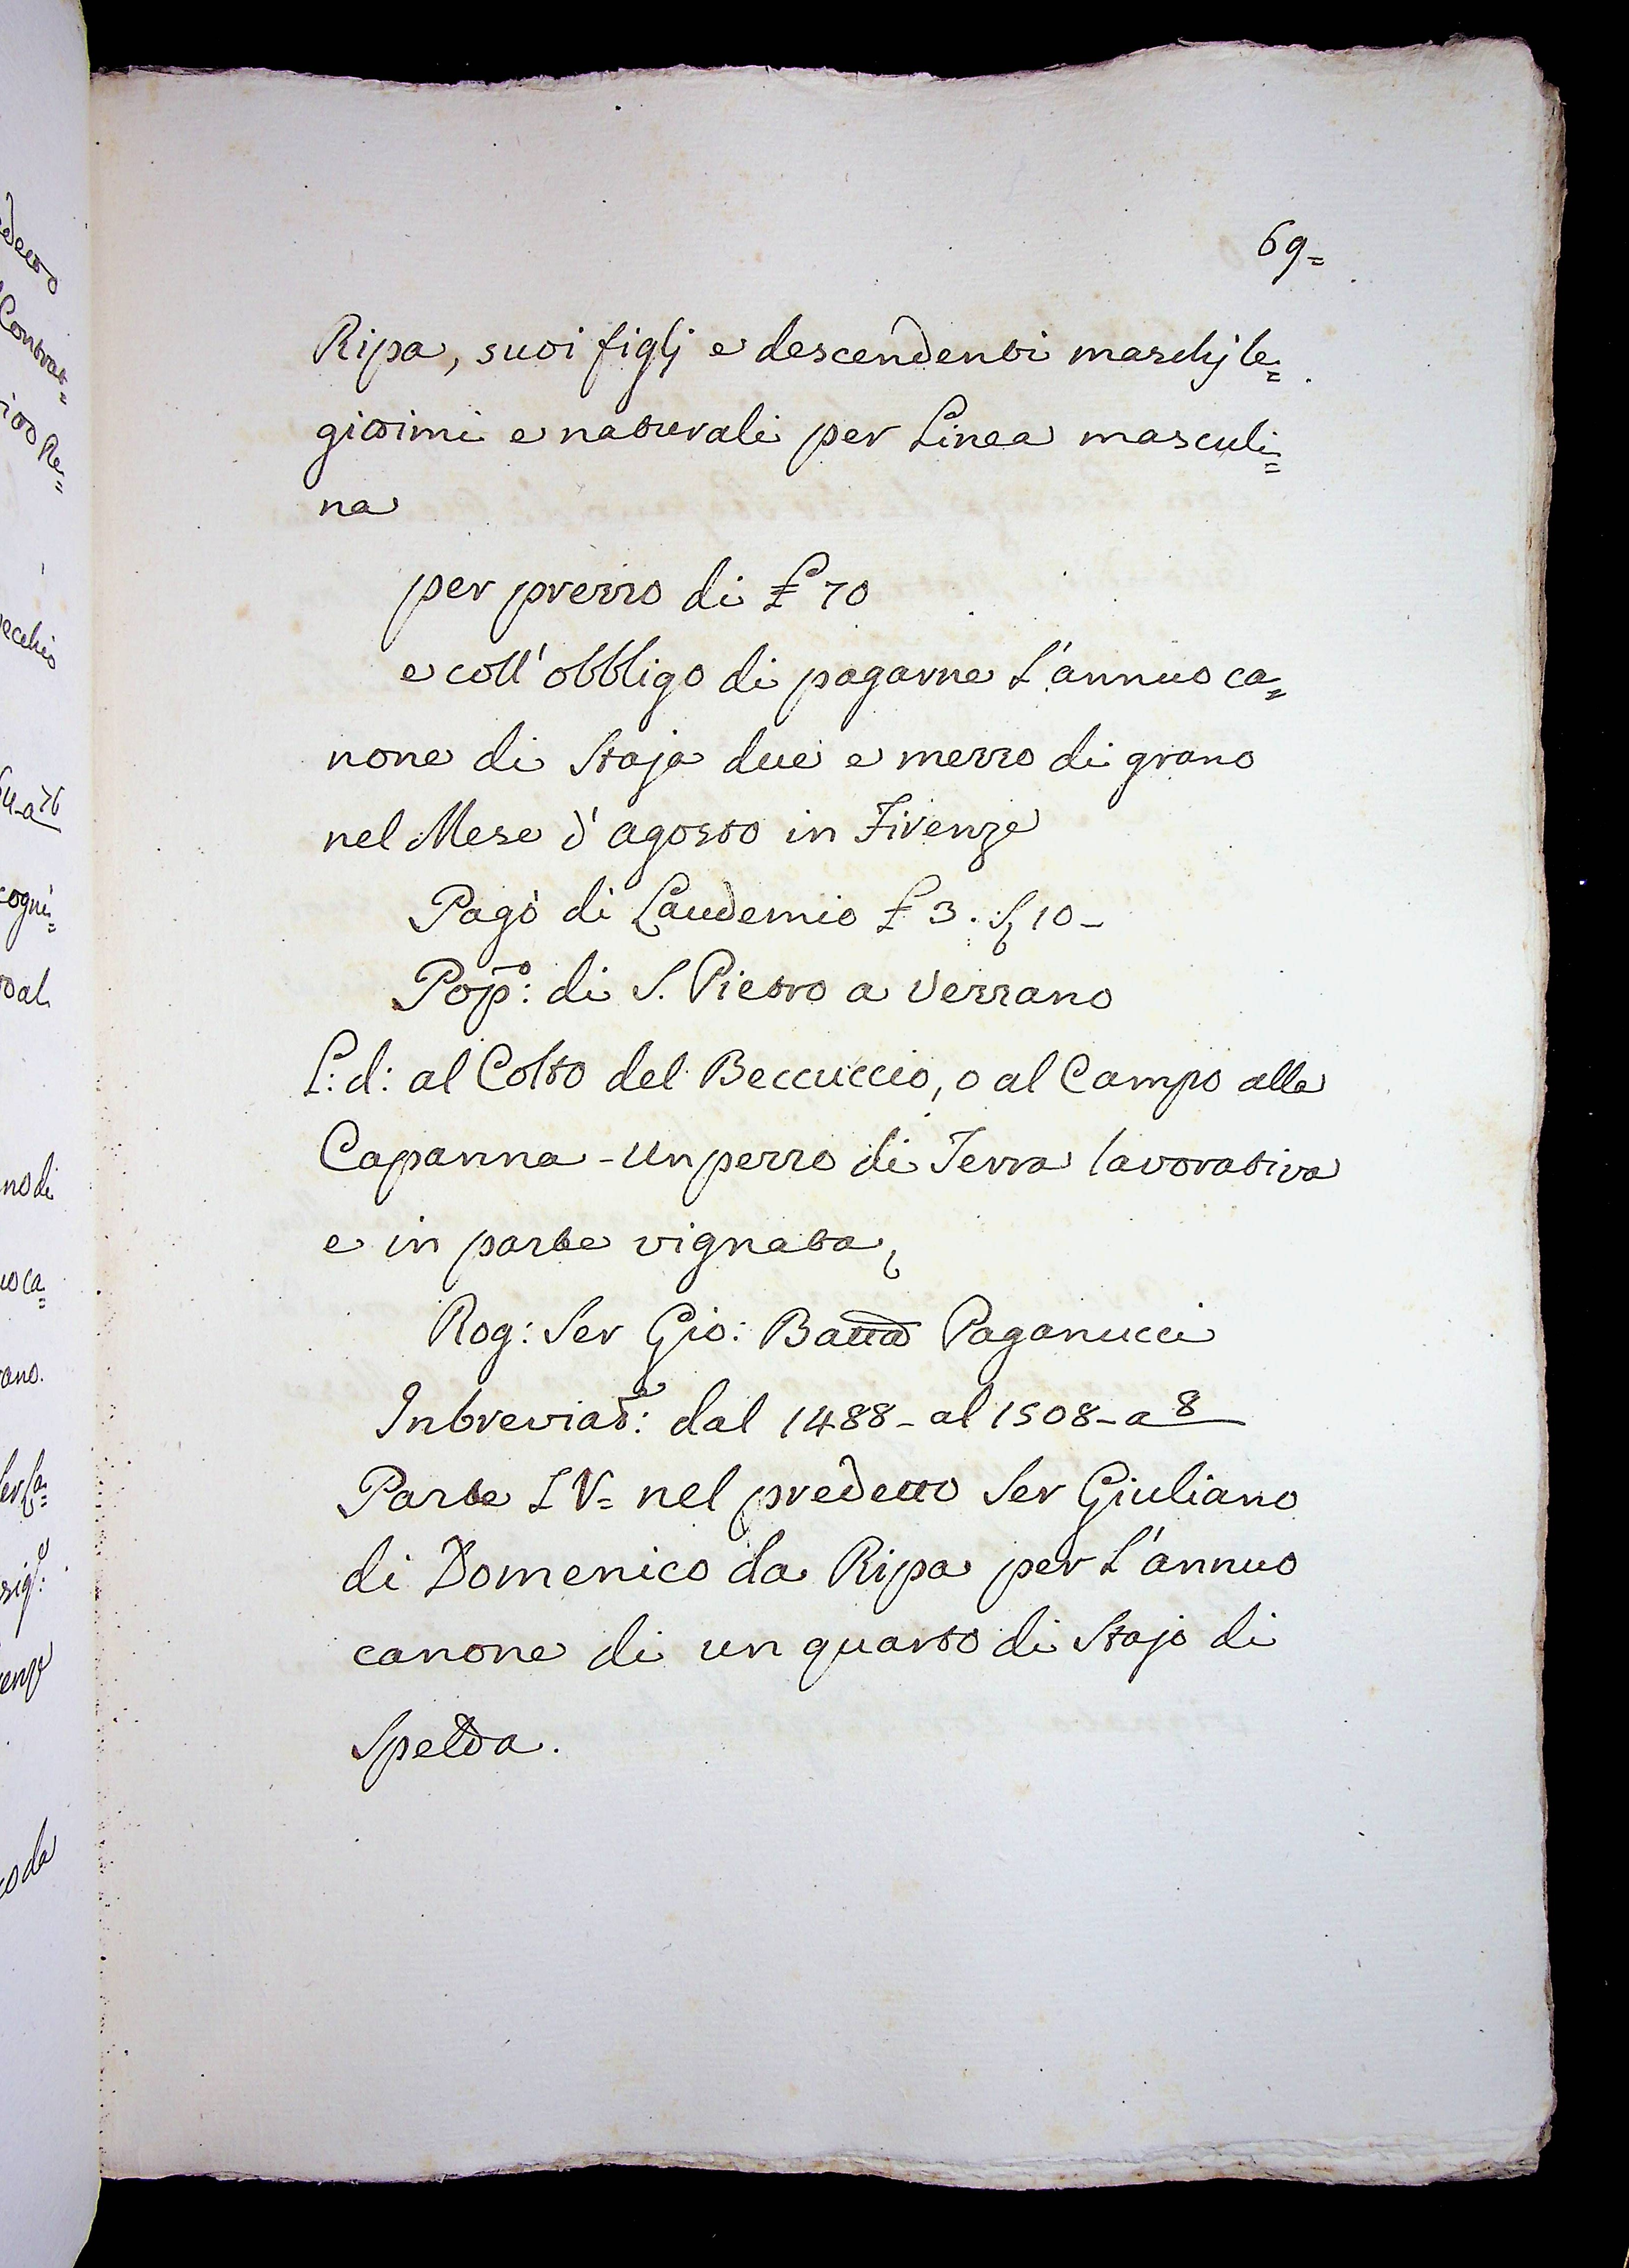 69=
Ripa, suoi figlj e descendenti maschj le=
gittimi e naturali per Linea masculi=
na
per prezzo di £ 70
e coll'obbligo di pagarne L'annuo ca=
none di Staja due e mezzo di grano
nel Mese d'agosto in Firenze
Pagò di Laudemio £ 3. S 10-
Popo: di S. Pietro a Verzano
L: d: al Colto del Beccuccio, o al Campo alla
Capanna - Un pezzo di Terra lavorativa
e in parte vignata,
Rog: Ser Gio: Batta Paganucci
Inbreviate: dal 1488- al 1508- a 8
Parte IV= nel predetto Ser Giuliano
di Domenico da Ripa per L'annuo
canone di un quarto di Stajo di
Spelda.